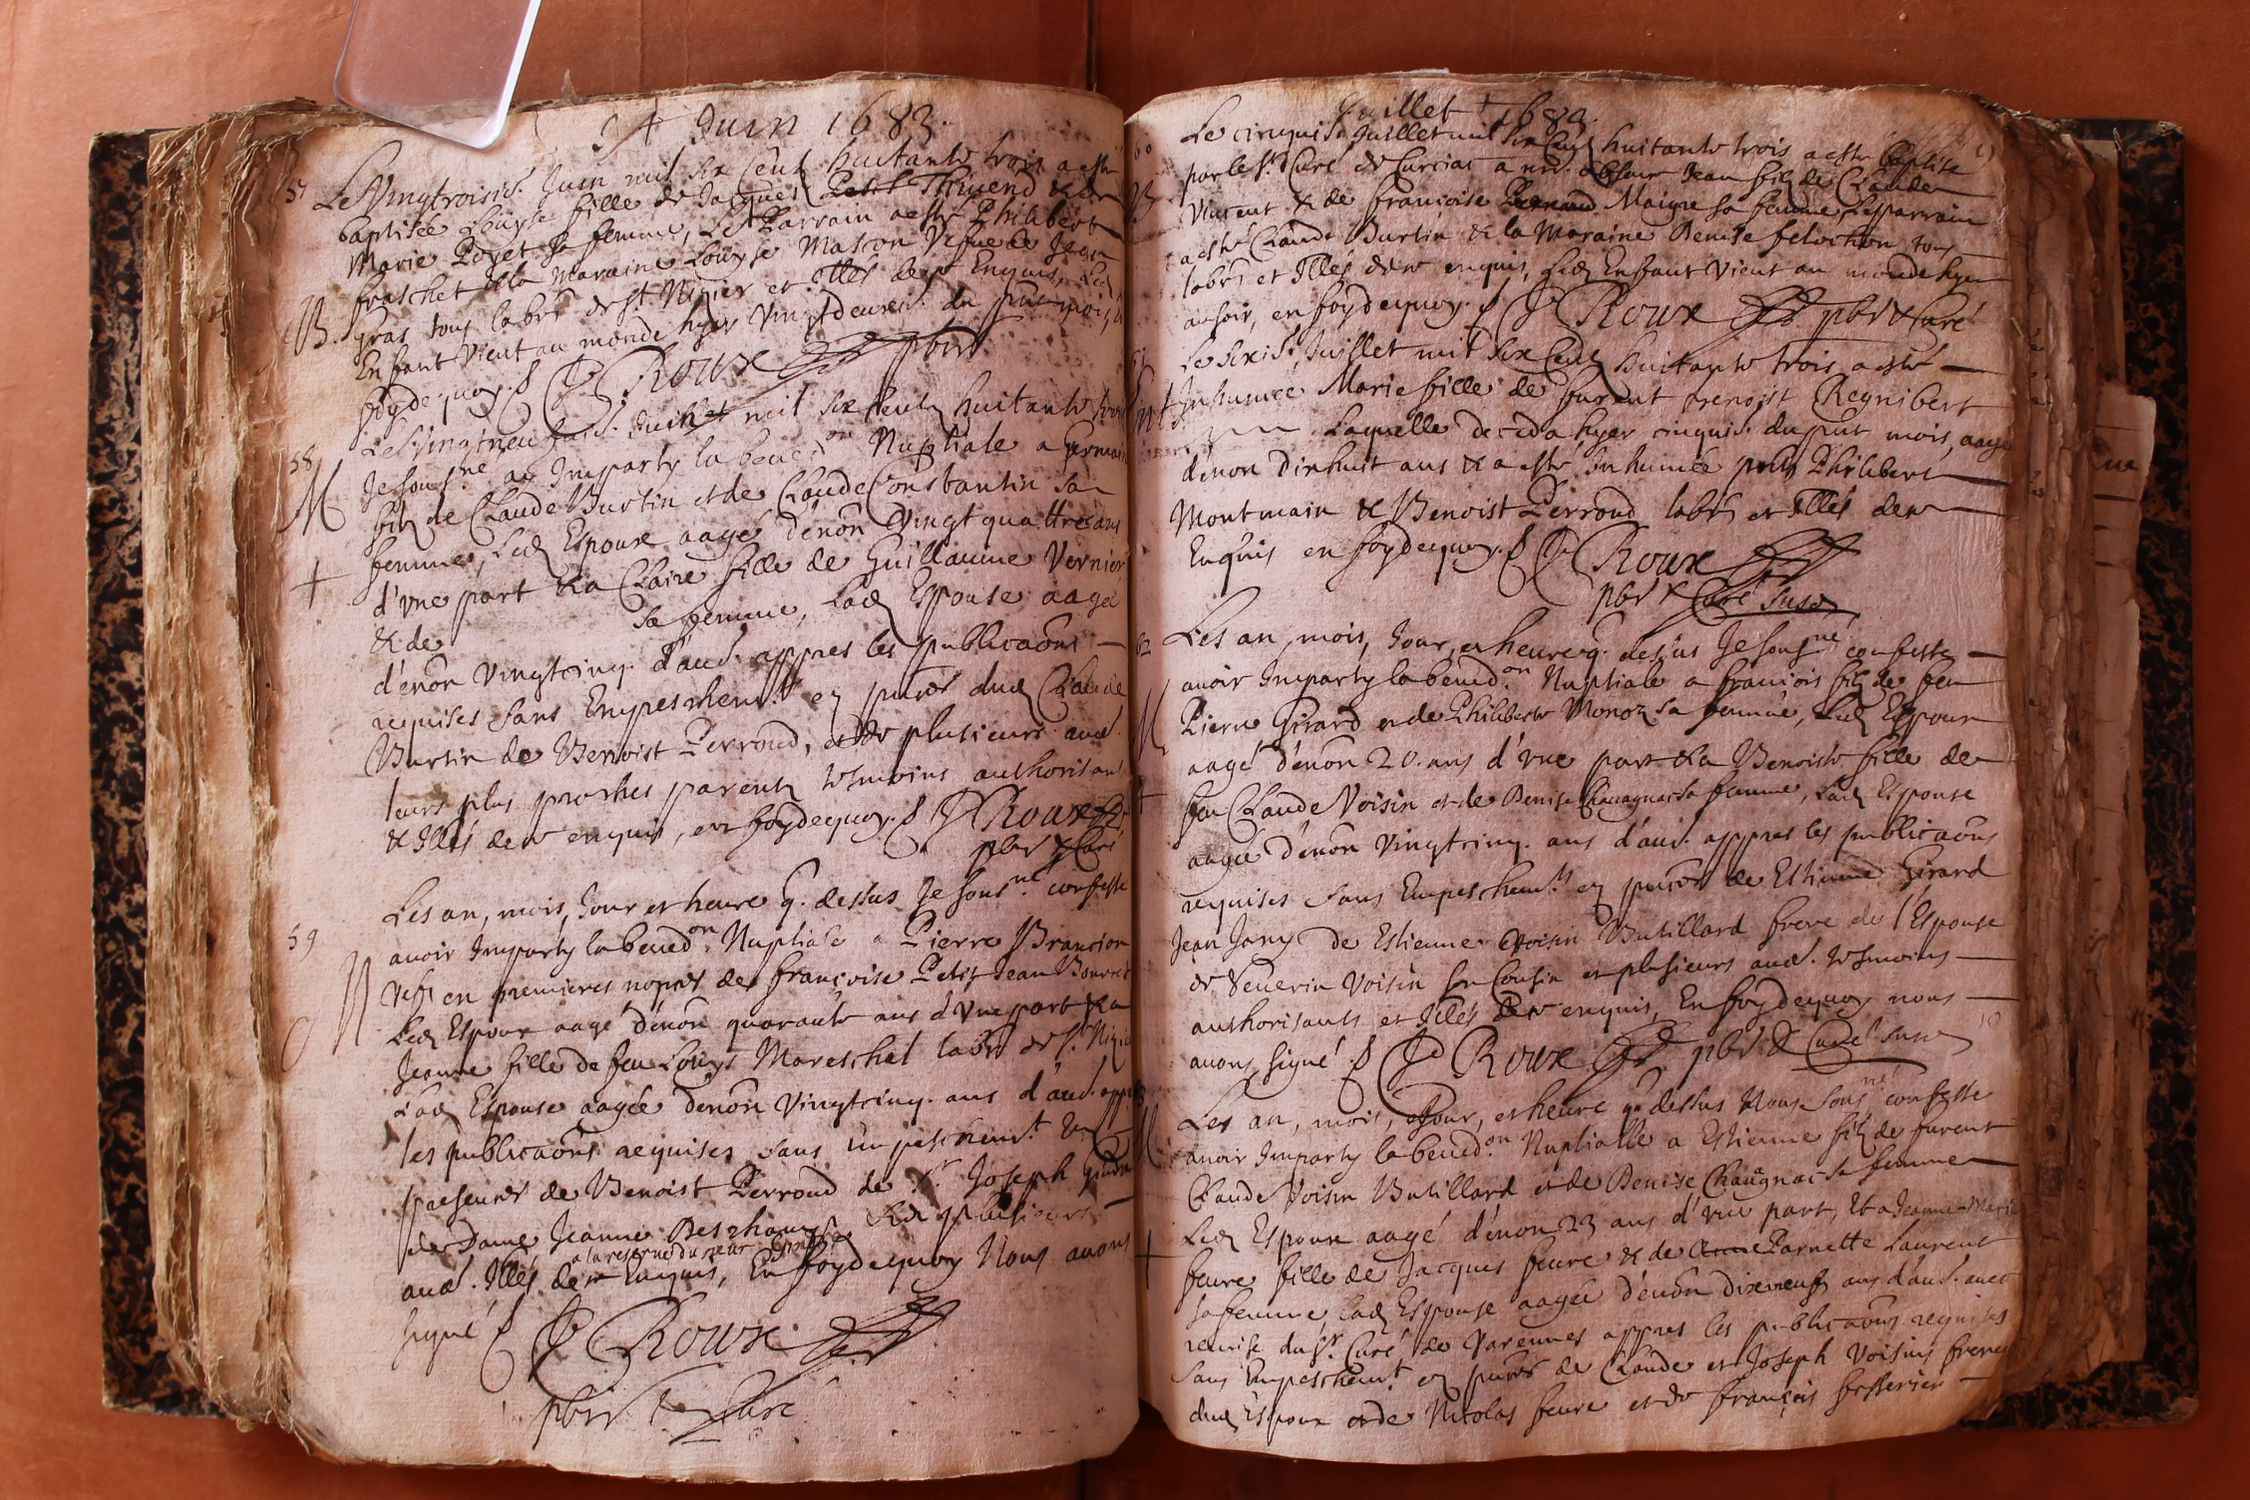 Juin 1683.
57 Le Vingtroisie. Juin mil six Cent huitante trois a este
baptisée Loüyse fille de Jacques Petit Thivend & de
Marie Poyet sa femme, Le Parrain a esté Philibert
fraschet & la Maraine Loüyse Matron Vefue de Jean
B. Gras tous labrs de St Nizier et Illés de ce Enquis, Led
Enfant Vient au monde hyer Vingtdeuxie. du pnt mois,
foydequoy. J Roux pbre
58 Le Vingtneufuie. Juillet mil six Cent huitante trois
M Je sousne ay Imparty la bened.on Nuptiale a Germain
fils de Claude Burtin et de Claude Constantin sa
femme, Led Espoux aagé d'enôn Vingt quattre ans
d'vne part & a Claire fille de Guillaume Vernier
& de sa femme, Lad Espouse aagée
d'enôn Vingtcinq. d'aud. appres les publicaôns
requises sans Empeschemt. en pnces dud Claude
Burtin de Benoist Perroud, et de plusieurs aud.
leurs plus proches parents tesmoins authorisant
& Illés de ce enquis, en foydequoy. J Roux
pbre & Curé
59 Les an, mois, Jour et heure q. dessus Je sousne. confesse
M avoir Imparty la bened.on Nuptiale a Pierre Brancion
Vefs en premieres nopces de françoise Petit Jean Bonnet
Led Espoux aagé d'enôn quarante ans d'Vne part & a
Jeanne fille de feu Loüys Mareschal labr de St. Nizier
Lad Espouse aagée d'enôn Vingtcinq. ans d'aud. appres
les publicaôns requises sans Empeschemt. En
presences de Benoist Perroud de Sr. Joseph
de Dame Jeanne Deschamps, & de plusieurs
a la reserve du sieur
aud. Illés. de ce Enquis, En foydequoy Nous avons
signé J Roux
pbre & Curé
Juillet 1683.
60 Le cinquie. Juillet mil six Cent huitante trois a este baptisé
B par le Sr. Curé de Curciat a nre. absence Jean fils de Claude
Vincent & de françoise Maigre sa femme Le parrain
a esté Claude Burtin & la Maraine Denise felochon tous
labrs et Illés de ce enquis, Led Enfant Vient au monde hyer
au soir, en foydequoy. J Roux pbre & Curé
Le sixie. Juillet mil six Cent huitante trois a esté
Inhumée Marie fille de furent Benoist Regnibert
Laquelle deceda hyer cinquie. du pnt mois, aagée
d'enon dixhuit ans & a esté Inhumée pnts Philibert
Montmain & Benoist Perroud labrs et Illés de ce
Enquis en foydequoy. J Roux
pbre & Curé susd
62 Les an, mois, Jour, et heure q. dessus Je sousgne confesse
M avoir Imparty la bened.on Nuptiale a francois fils de feu
Pierre Girard et de Philiberte Monoz sa femme, Led Espoux
aagé d'enôn 20. ans d'vne part & a Benoiste fille de
feu Claude Voisin et de Denise Chavagnac sa femme, Lad Espouse
aagée d'enôn Vingtcinq. ans d'aud. appres les publicaôns
requises sans Empeschemts en pnces de Estienne Girard
Jean Jany de Estienne Voisin Butillard frere de l'Espouse
de Severin Voisin son Cousin et plusieurs aud. tesmoins
authorisants et Illés de ce enquis, En foydequoy nous
avons signé. J Roux pbre & Curé susd
Les an, mois, Jour, et heure q. dessus Nous sousnés confesse
avoir Imparty la bened.on Nuptialle a Estienne fils de furent
Claude Voisin Butillard et de Denise Chaûgnac sa femme
Led Espoux aagé d'enon 23 ans d'vne part, Et a Jeanne Marie
feure fille de Jacques feure & de Parnette Laurent
sa femme, Lad Espouse aagée d'enôn dixneufs ans d'aud. avec
remise du Sr. Curé de Varennes appres les publicaôns requises
sans Empeschemt. en pnces de Claude et Joseph Voisins freres
dud Espoux et de Nicolas feure et de françois